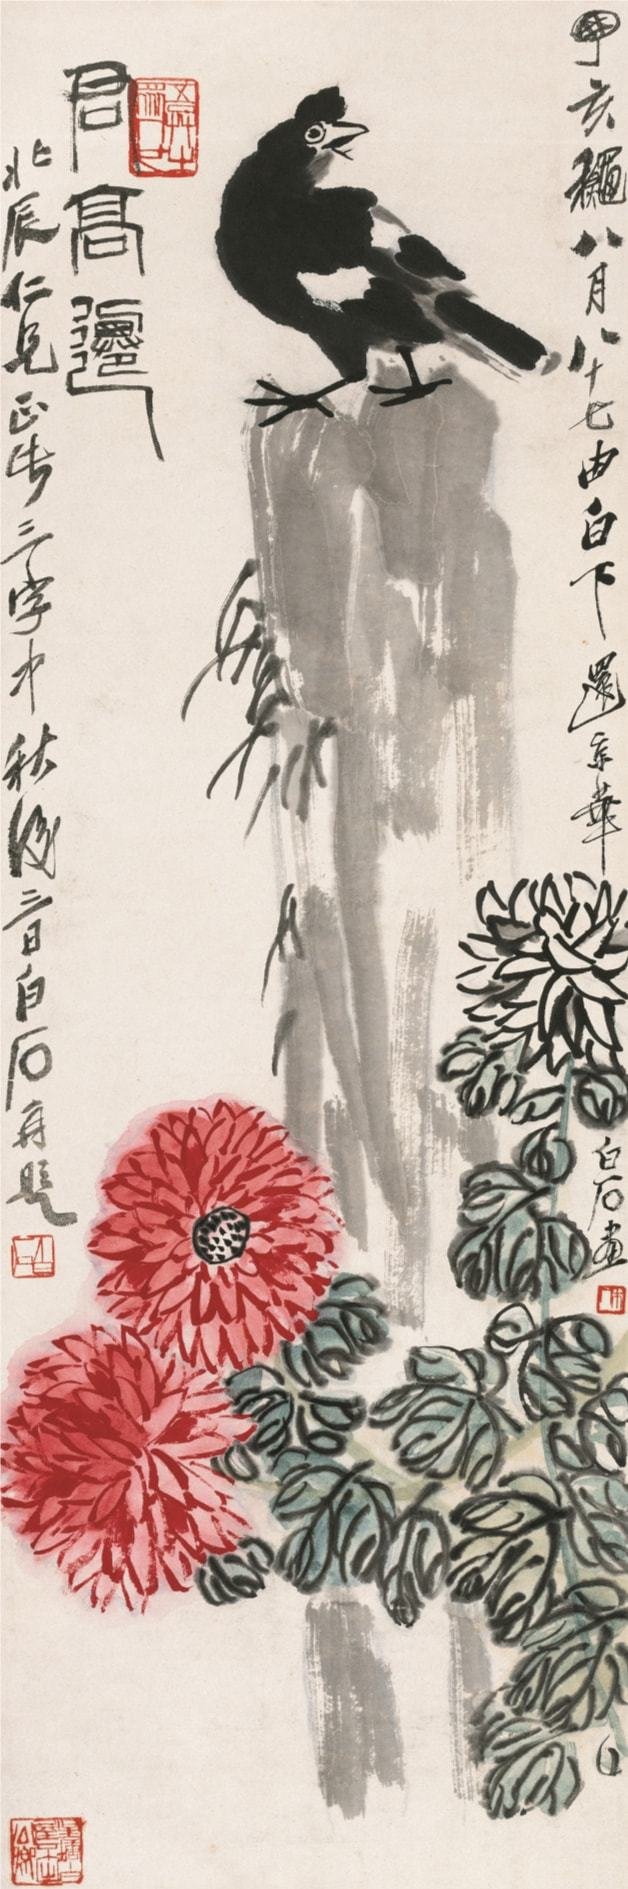 甲亥穐八月八十七由白下還京華
白石畫
日
君高遷
北辰仁兄正书三字中秋後三日白石再題